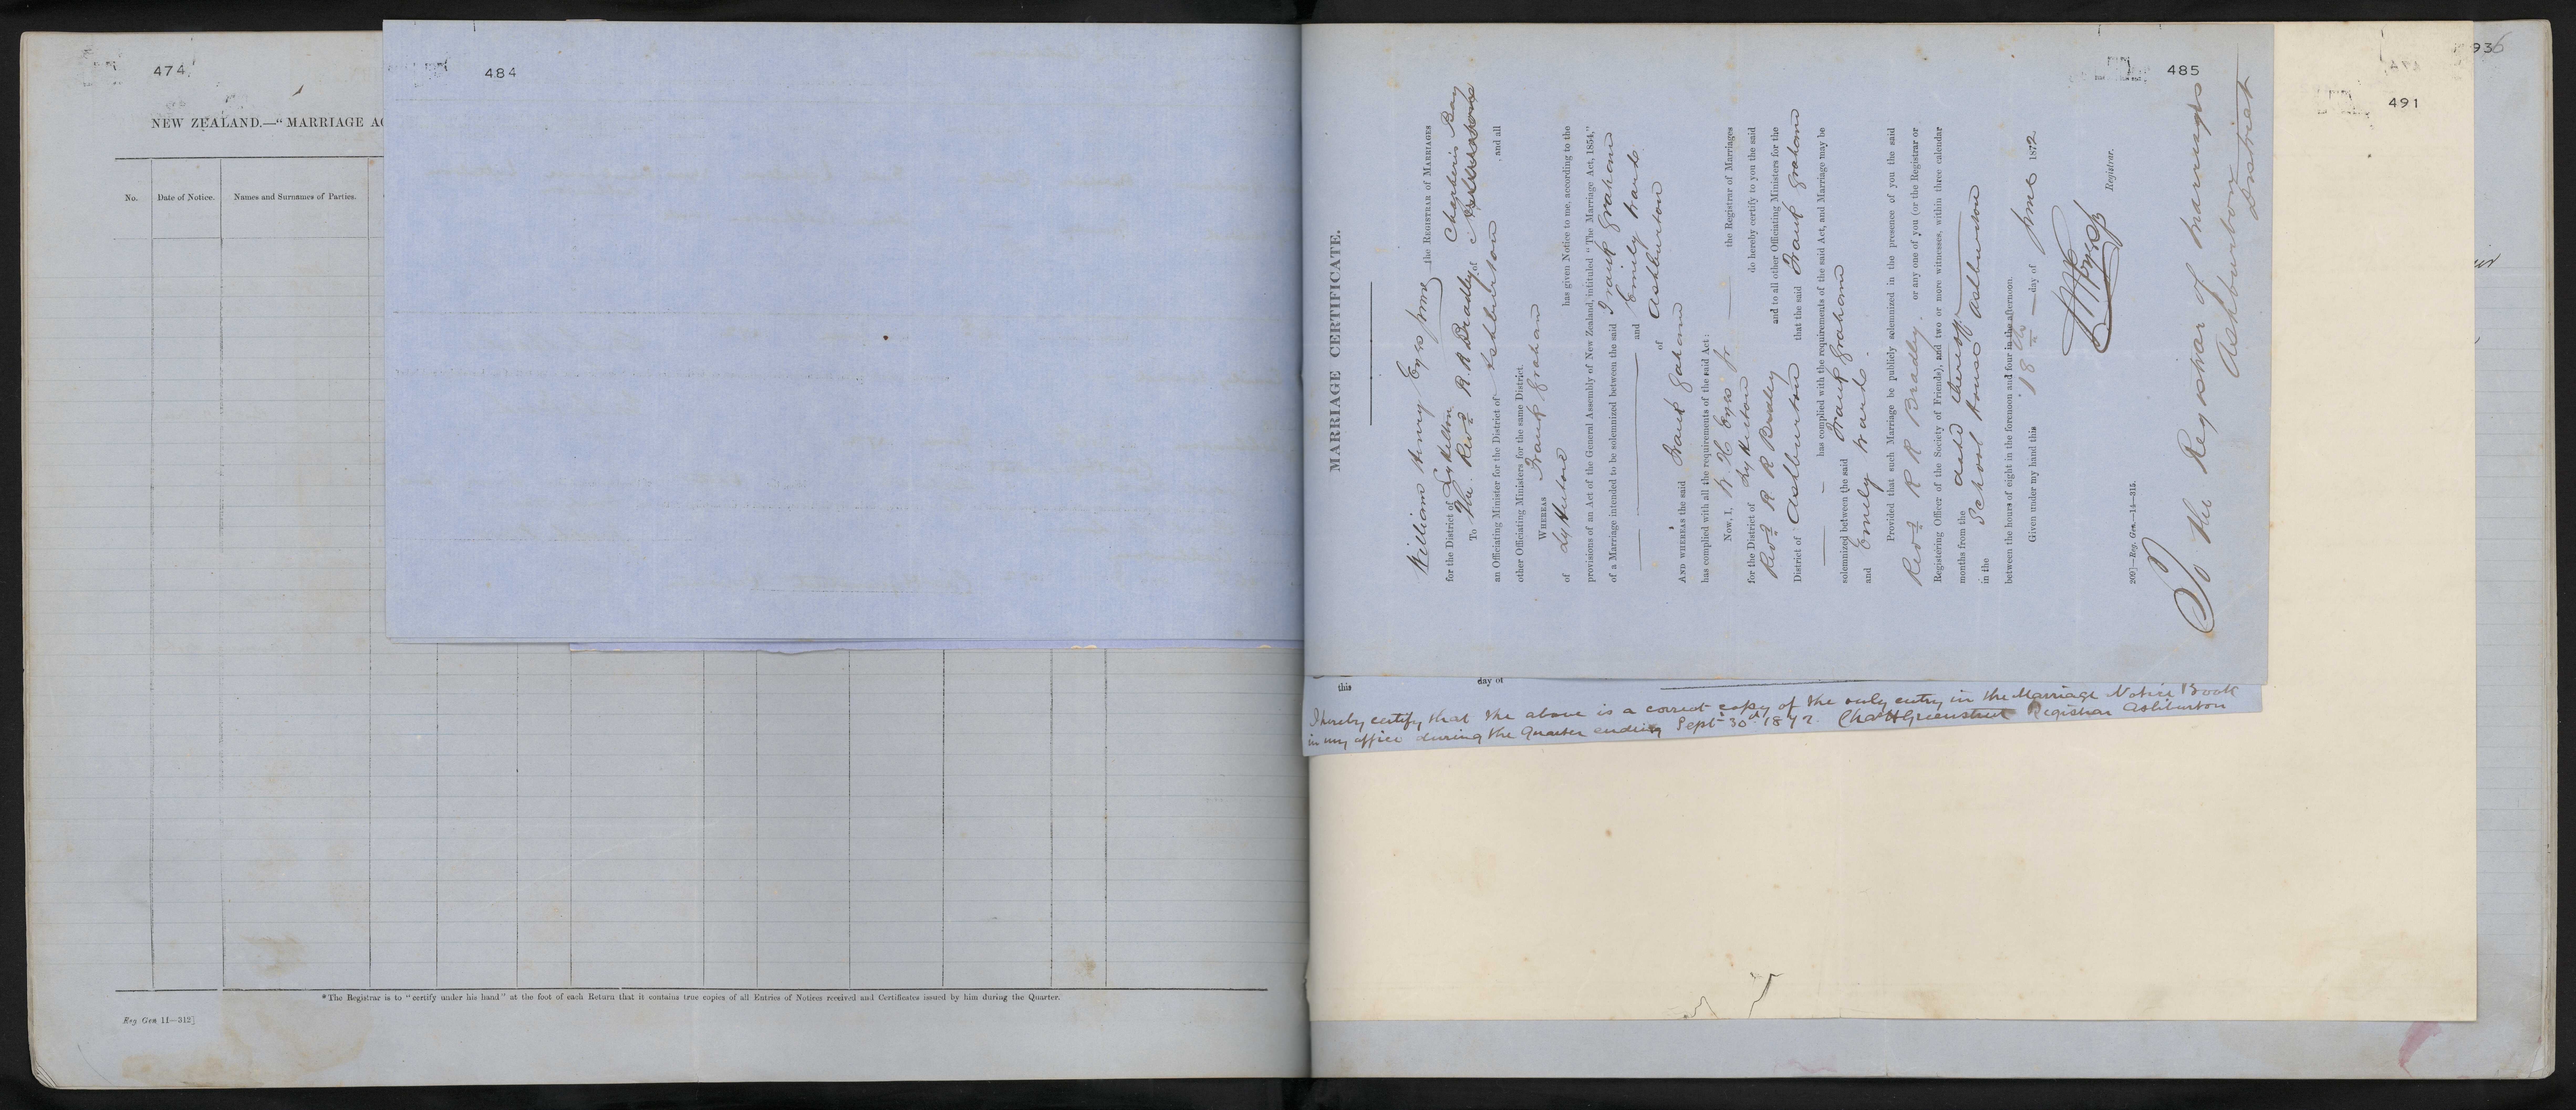 474
NEW ZEALAND.—"MARRIAGE AC
No. Date of Notice. Names and Surnames of Parties.
*The Registrar is to "certify under his hand" at the foot of each Return that it contains true copies of all Entries of Notices received and Certificates issued by him during the Quarter.
Reg Gen 11—312]
484
485
MARRIAGE CERTIFICATE.
William Henry Eyes Junr the REGISTRAR OF MARRIAGES
for the District of Lyttelton
To The Revd R. R. Bradley of Chapteris Bay
an Officiating Minister for the District of Ashburton, and all
other Officiating Ministers for the same District.
WHEREAS Frank Graham
of Lyttelton has given Notice to me, according to the
provisions of an Act of the General Assembly of New Zealand, intituled "The Marriage Act, 1854,"
of a Marriage intended to be solemnized between the said Frank Graham
and Emily Hands
of Ashburton
AND WHEREAS the said Frank Gaham
has complied with all the requirements of the said Act:
Now, I, W. H Eyes Jr the Registrar of Marriages
for the District of Lyttelton do hereby certify to you the said
Revd R R Bradley and to all other Officiating Ministers for the
District of Ashburton that the said Frank Graham
has complied with the requirements of the said Act, and Marriage may be
solemnized between the said Frank Graham
and Emely Hands.
Provided that such Marriage be publicly solemnized in the presence of you the said
Revd R R Bradley. or any one of you (or the Registrar or
Registering Officer of the Society of Friends), and two or more witnesses, within three calendar
months from the date thereof.
in the School House Ashburton
between the hours of eight in the forenoon and four in the afternoon.
Given under my hand this 18th day of June 1872
Registrar.
209]—Reg. Gen.—14—315.
To the Registrar of Marriages
Ashburton
District
this day of
I hereby certify that the above is a correct copy of the only entry in the Marriage Notice Book
in my office during the Quarter ending Sept 30th 1872. Chas H Greenstreet Registrar Ashburton
491
936